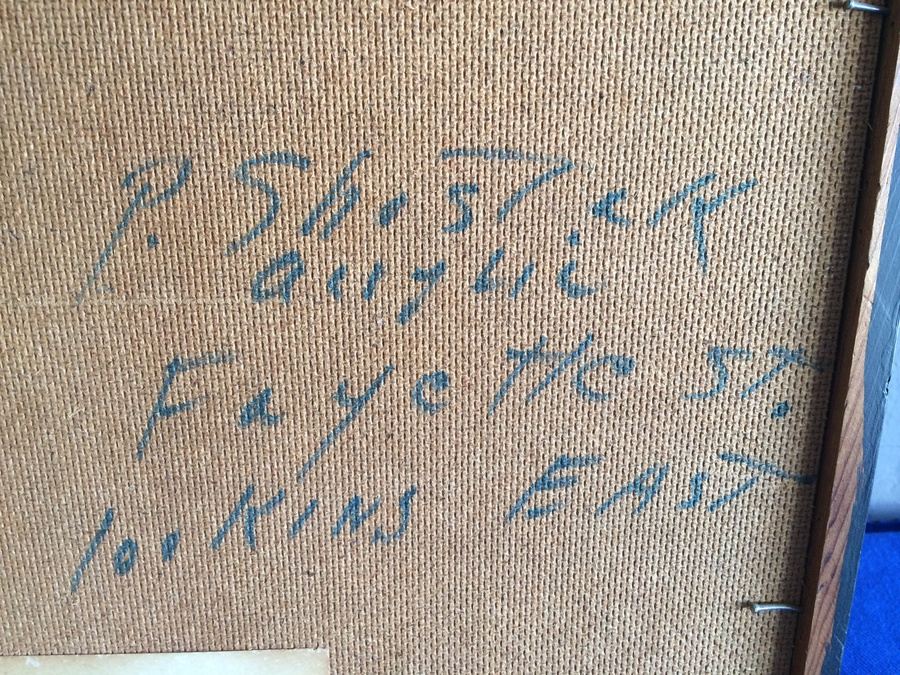 P. Shostak
acrylic
Fayette ST.
looking EAST